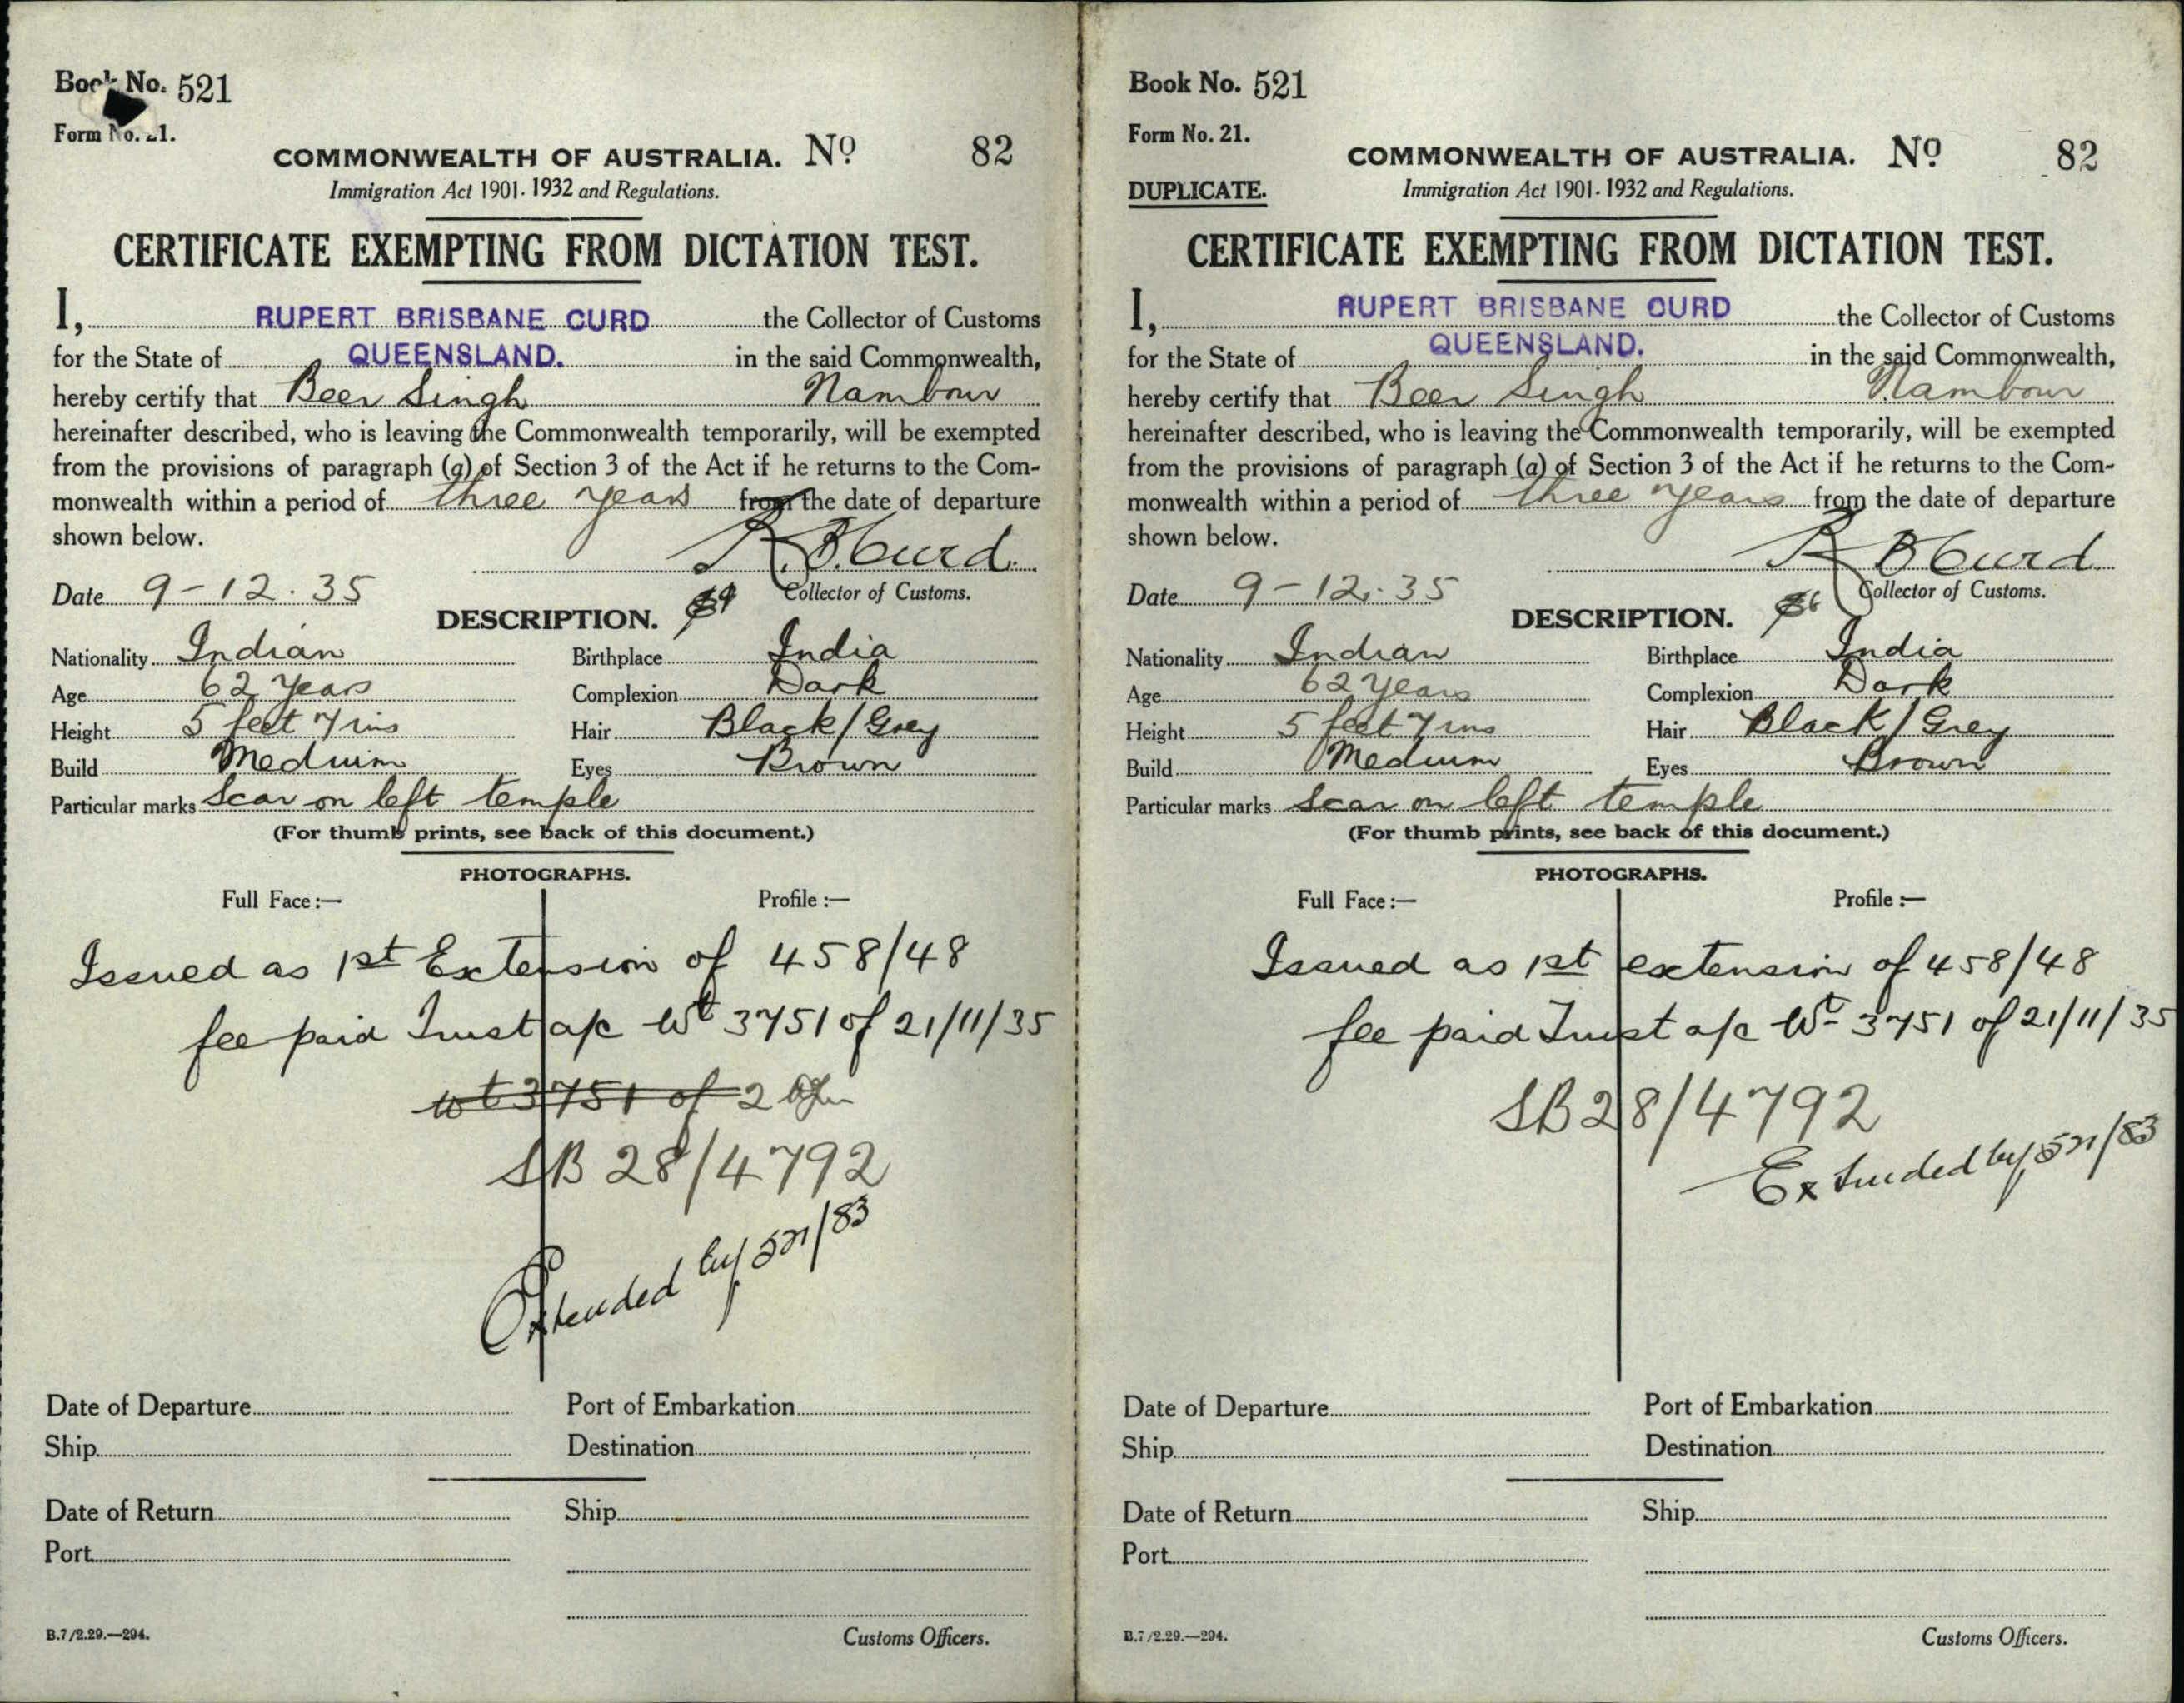 Book No. 521
Form No. 21.
COMMONWEALTH OF AUSTRALIA. Nº 82
Immigration Act 1901-1932 and Regulations.
CERTIFICATE EXEMPTING FROM DICTATION TEST.
I, RUPERT BRISBANE CURD the Collector of Customs
for the State of QUEENSLAND. in the said Commonwealth,
hereby certify that Beer Singh Nambour
hereinafter described, who is leaving the Commonwealth temporarily, will be exempted
from the provisions of paragraph (a) of Section 3 of the Act if he returns to the Com-
monwealth within a period of three years from the date of departure
shown below.
R.B. Curd.
Date 9-12.35 Collector of Customs.
DESCRIPTION.
Nationality Indian Birthplace India
Age 62 years Complexion Dark
Height 5 feet 7 ins Hair Black/Grey
Build Medium Eyes Brown
Particular marks Scar on left temple
(For thumb prints, see back of this document.)
PHOTOGRAPHS.
Full Face:— Profile:—
Issued as 1st Extension of 458/48
fee paid Trust a/c Wt 3751 of 21/11/35
wt 3751 of 2
SB 28/4792
Extended by 521/83
Date of Departure Port of Embarkation
Ship Destination
Date of Return Ship
Port
B.7/2.29.—294. Customs Officers.
Book No. 521
Form No. 21.
COMMONWEALTH OF AUSTRALIA. Nº 82
DUPLICATE. Immigration Act 1901-1932 and Regulations.
CERTIFICATE EXEMPTING FROM DICTATION TEST.
I, RUPERT BRISBANE CURD the Collector of Customs
for the State of QUEENSLAND. in the said Commonwealth,
hereby certify that Beer Singh Nambour
hereinafter described, who is leaving the Commonwealth temporarily, will be exempted
from the provisions of paragraph (a) of Section 3 of the Act if he returns to the Com-
monwealth within a period of three years from the date of departure
shown below.
R B Curd
Date 9-12.35 Collector of Customs.
DESCRIPTION.
Nationality Indian Birthplace India
Age 62 years Complexion Dark
Height 5 feet 7 ins Hair Black/Grey
Build Medium Eyes Brown
Particular marks Scar on left temple
(For thumb prints, see back of this document.)
PHOTOGRAPHS.
Full Face:— Profile:—
Issued as 1st extension of 458/48
fee paid Trust a/c Wt 3751 of 21/11/35
SB28/4792
Extended by 521/83
Date of Departure Port of Embarkation
Ship Destination
Date of Return Ship
Port
B.7/2.29.—294. Customs Officers.